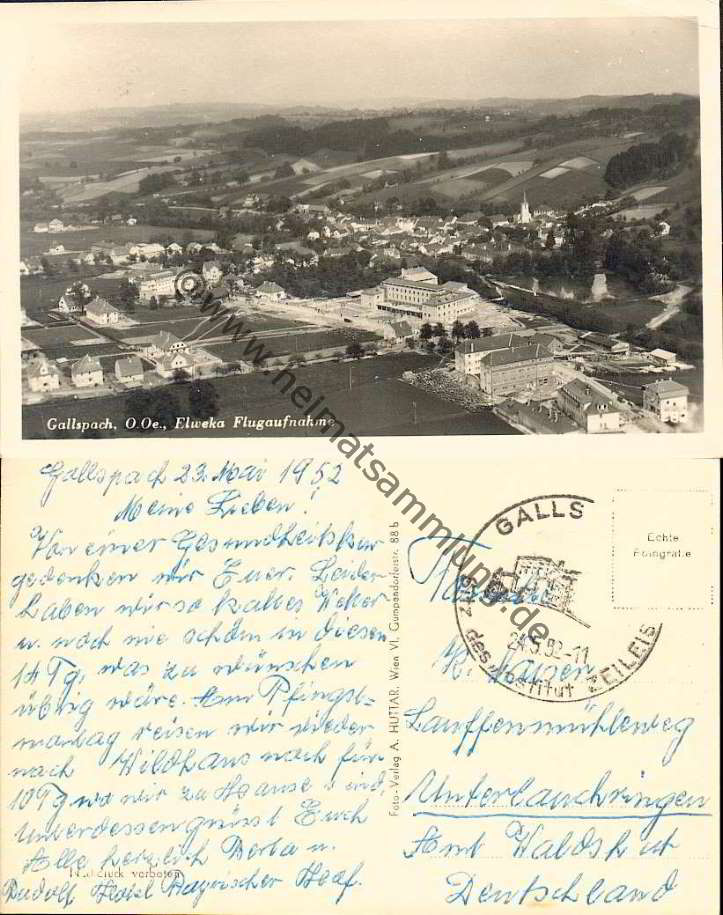 Gallspach, O.Oe., Elweka Flugaufnahme
www.heimatsammlung.de
Gallspach 23. Mai 1952
Meine Lieben!
Von einer Gesundheitskur
gedenken wir Euer. Leider
haben wir so kaltes Wetter
u. noch nie schön in diesen
14 Tg, was zu wünschen
übrig wäre. Am Pfingst=
montag reisen wir wieder
nach Wildhaus noch für
10 Tg wo wir zu Hause sind
Unterdessen grüsst Euch
Alle herzlich Berta u.
Rudolf Hotel Bayrischer Hof.
Nachdruck verboten
Foto-Verlag A. HUTTAR, Wien VI, Gumpendorferstr. 88 b
GALLS
Sitz des Institut ZEILEIS
24.5.52-11
Echte
Fotografie
Familie
K. Maier
Lauffenmühleweg
Unterlauchringen
Amt Waldshut
Deutschland